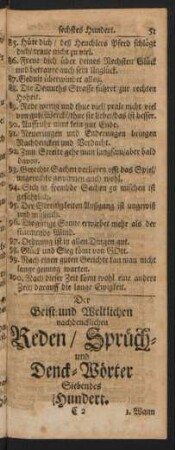 sechstes Hundert. 51
85. Hüte dich / deß Heuchlers Pferd schlägt
dich / traue nicht zu viel.
86. Freue dich über deines Nechsten Glück
und betraure auch sein Unglück.
87. Gedult überwindet alles.
88. Die Demuths Strasse führet zur rechten
Hoheit.
89. Rede wenig und thue viel;
90. Auffruhr nimt kein gut Ende.
91. Neuerungen und Enderungen bringen
Nachdencken und Verdacht.
92. Zum Streite gehe man langsam / aber bald
davon.
93. Gerechte Sachen verlieren offt das Spiel /
ungerechte das gewinnen.
94. Sich in frembde Sachen zu mischen ist
gefährlich.
95. Der Streitigkeiten Außgang ist ungewiß
und mißlich.
96. Sonne erwärmet mehr als der
Wind.
97. Ordnung ist in allen Dingen gut.
98. Glück und Sieg komt von GOtt.
99. Nach einem guten Gerichte kan man nicht
lange hungrig warten.
100. Nach dieser Zeit komt wohl eine andere
Zeit / darauff die lange Ewigkeit.
Der
Geist und Weltlichen
nachdencklichen
Reden / Sprüch-
und
Denck-Wörter
Siebendes
Hundert.
C 2 1. Wann